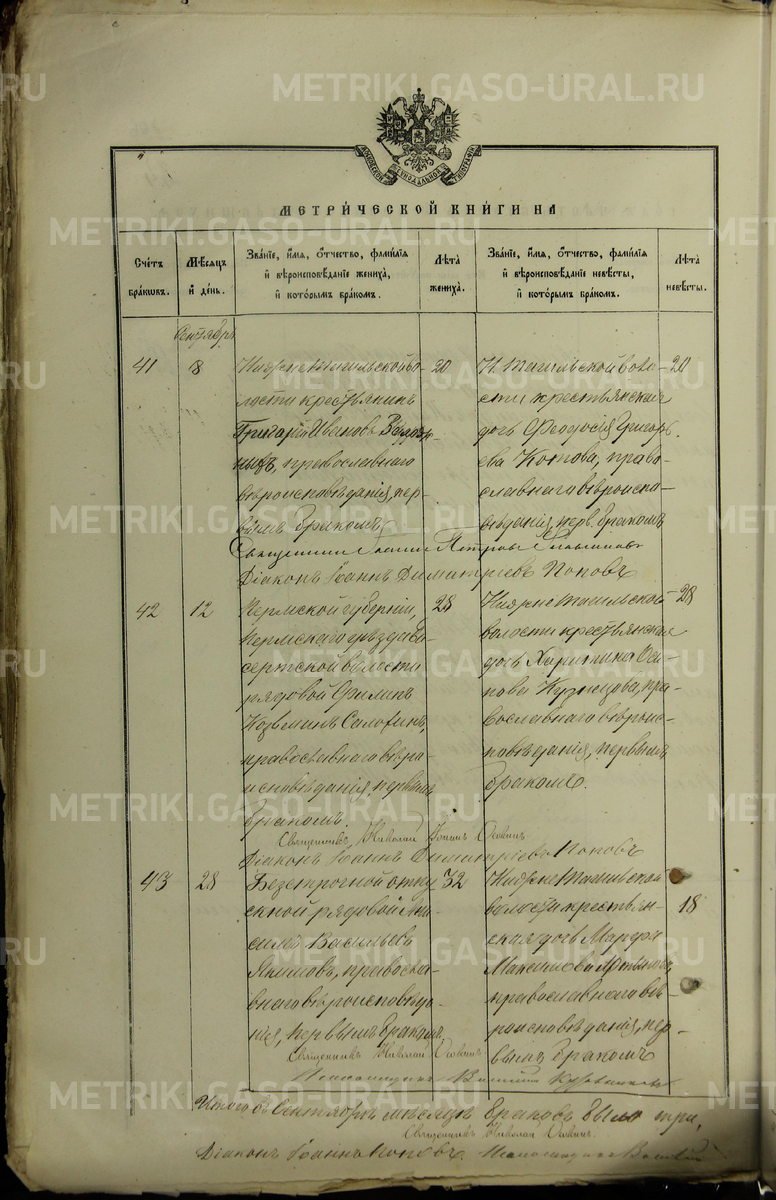 METRIKI.GASO-URAL.RU
МЕТРИ́ЧЕСКОЙ КНИ́ГИ НА
Счетъ бра́ковъ.
Мѣ́сяцъ и́ де́нь.
Зва́нїе, и́мя, о́тчество, фами́лїя и́ вѣроисповѣ́данїе жениха̀, и́ кото́рымъ бра́комъ.
Лѣ́та жениха̀.
Зва́нїе, и́мя, о́тчество, фами́лїя и́ вѣроисповѣ́данїе невѣ́сты, и́ кото́рымъ бра́комъ.
Лѣ́та невѣ́сты.
Сентябрь
41
8
Нижнетагильской во-
лости крестьянинъ
Григорій Ивановъ
православнаго
вѣроисповѣданія, пер-
вымъ бракомъ
20
Н. Тагильской воло-
сти крестьянская
дочь Феодосія Григорь-
ева Котова, право-
славнаго вѣроиспо-
вѣданія, перв. бракомъ
20
Священникъ Іоаннъ Петровъ
Діаконъ Іоаннъ Димитріевъ Поповъ
42
12
Пермской губерніи,
Пермскаго уѣзда
сертской волости
рядовой Филипъ
Козьминъ
православнаго вѣро-
исповѣданія, первымъ
бракомъ.
28
Нижнетагильской
волости крестьянская
дочь Харитина Оси-
пова Кузнецова, пра-
вославнаго вѣроис-
повѣданія, первымъ
бракомъ.
28
Священникъ Николай Іоаннъ
Діаконъ Іоаннъ Димитріевъ Поповъ
43
28
Безсрочной отпу-
скной рядовой
Васильевъ
Якимовъ, правосла-
внаго вѣроисповѣда-
нія, первымъ бракомъ.
32
Нижнетагильской
волости крестьян-
ская дочь Марфа
Максимова
православнаго вѣ-
роисповѣданія, пер-
вымъ бракомъ
18
Священникъ Николай
Псаломщикъ Василій
Итого въ Сентябрѣ мѣсяцѣ браковъ было три,
Священникъ Николай
Діаконъ Іоаннъ Поповъ. Псаломщикъ Василій